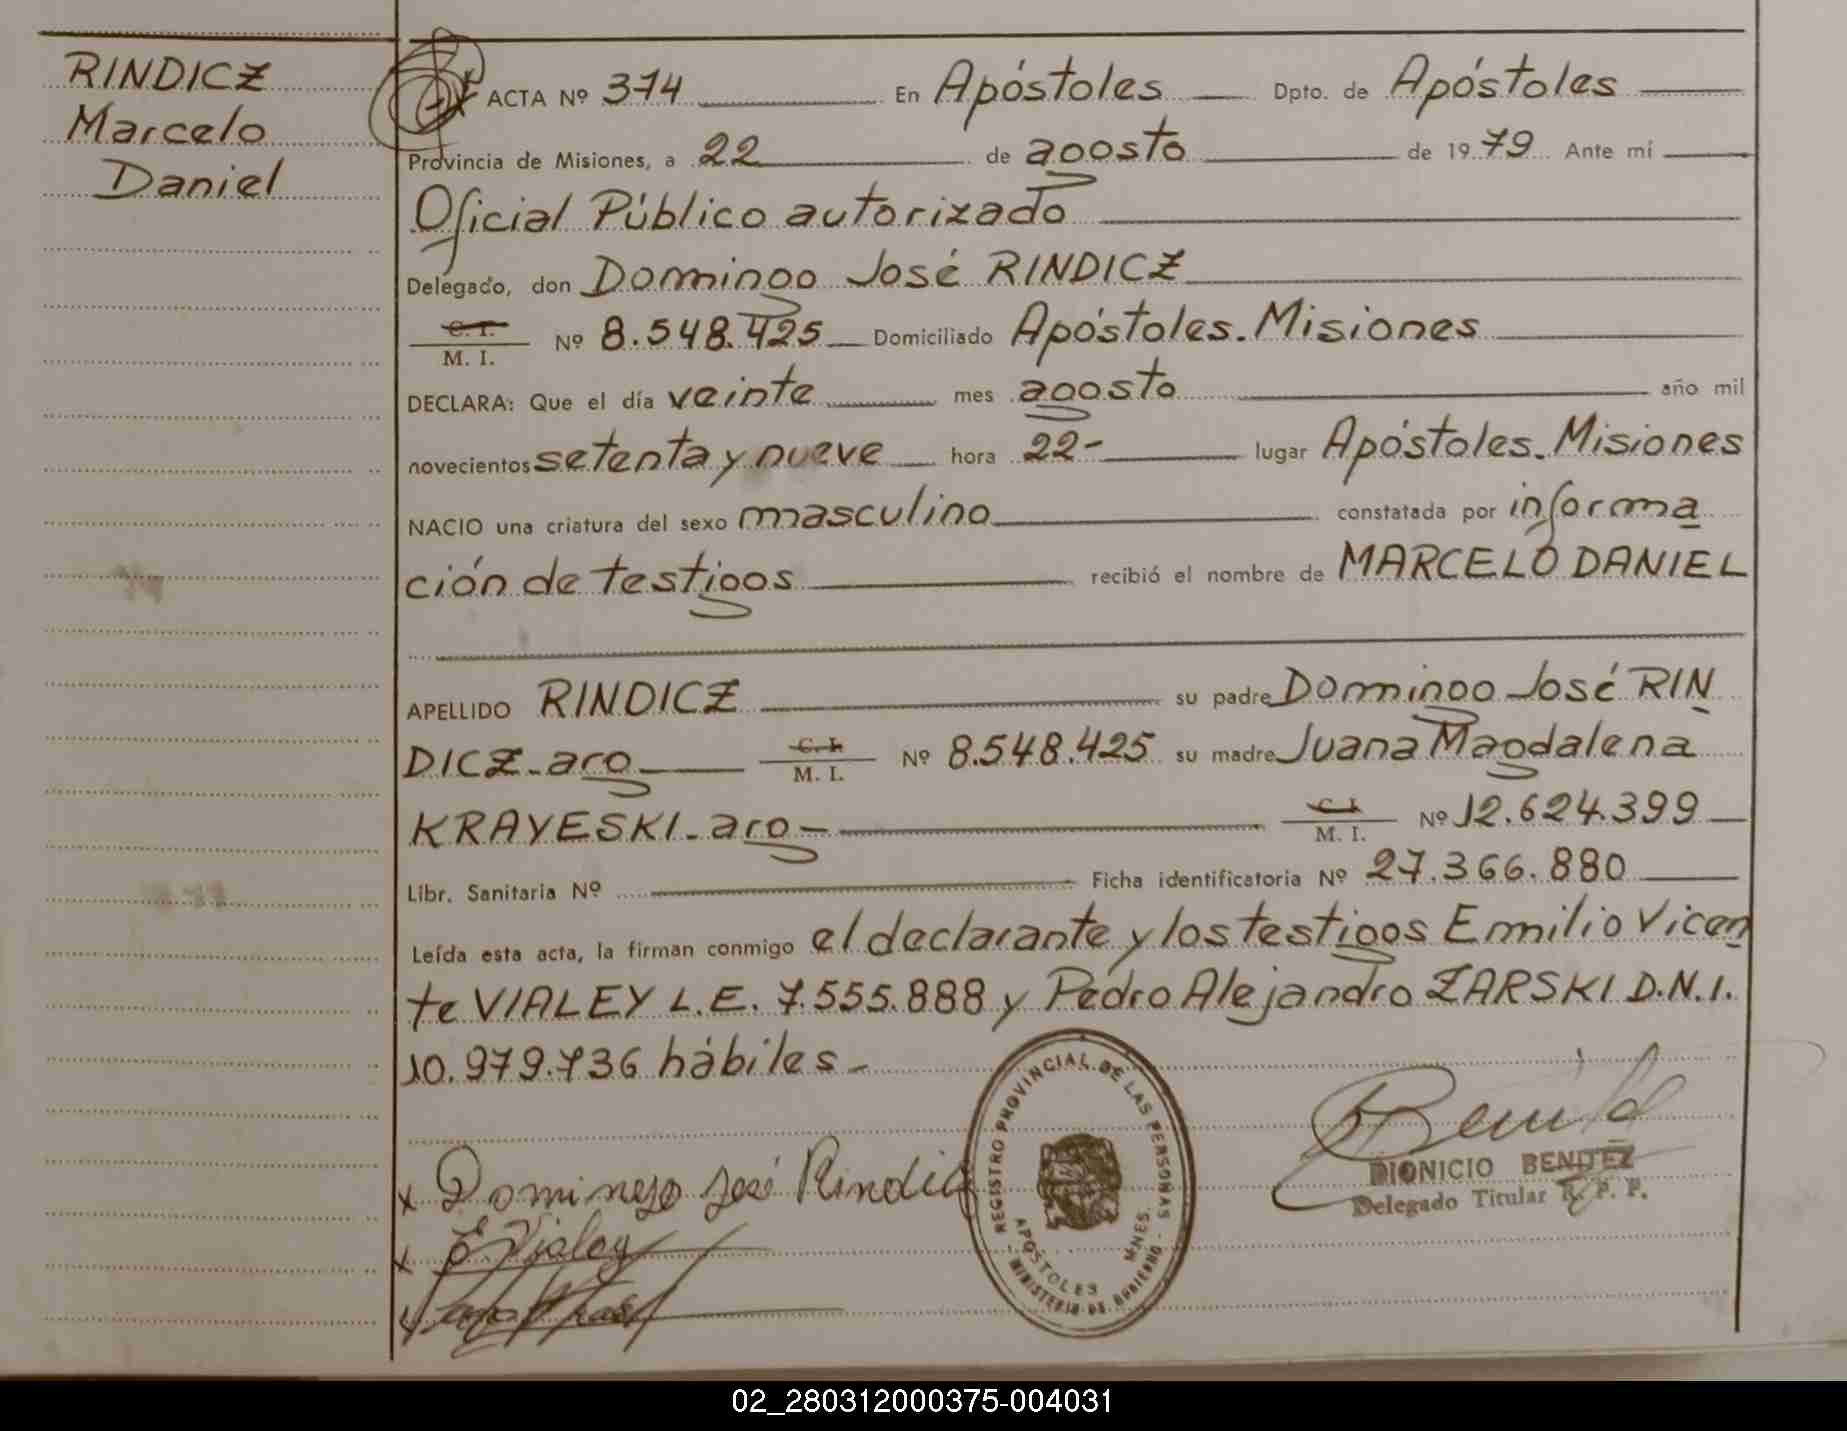 RINDICZ
Marcelo
Daniel
ACTA Nº 374 En Apóstoles Dpto. de Apóstoles
Provincia de Misiones, a 22 de agosto de 1979 Ante mí
Oficial Público autorizado
Delegado, don Domingo José RINDICZ
C. I.
M. I. Nº 8.548.425 Domiciliado Apóstoles. Misiones
DECLARA: Que el día veinte mes agosto año mil
novecientos setenta y nueve hora 22- lugar Apóstoles. Misiones
NACIO una criatura del sexo masculino constatada por informa
ción de testigos recibió el nombre de MARCELO DANIEL
APELLIDO RINDICZ su padre Domingo José RIN
DICZ-arg C. I. M. I. Nº 8.548.425 su madre Juana Magdalena
KRAYESKI-arg- C. I. M. I. Nº 12.624.399
Libr. Sanitaria Nº Ficha identificatoria Nº 27.366.880
Leída esta acta, la firman conmigo el declarante y los testigos Emilio Vicen
te VIALEY L.E. 7.555.888 y Pedro Alejandro ZARSKI D.N.I.
10.979.736 hábiles-
REGISTRO PROVINCIAL DE LAS PERSONAS
APOSTOLES MNES.
MINISTERIO DE GOBIERNO
DIONICIO BENITEZ
Delegado Titular R. P. P.
x Domingo José Rindic
x E. Vialey
02_280312000375-004031